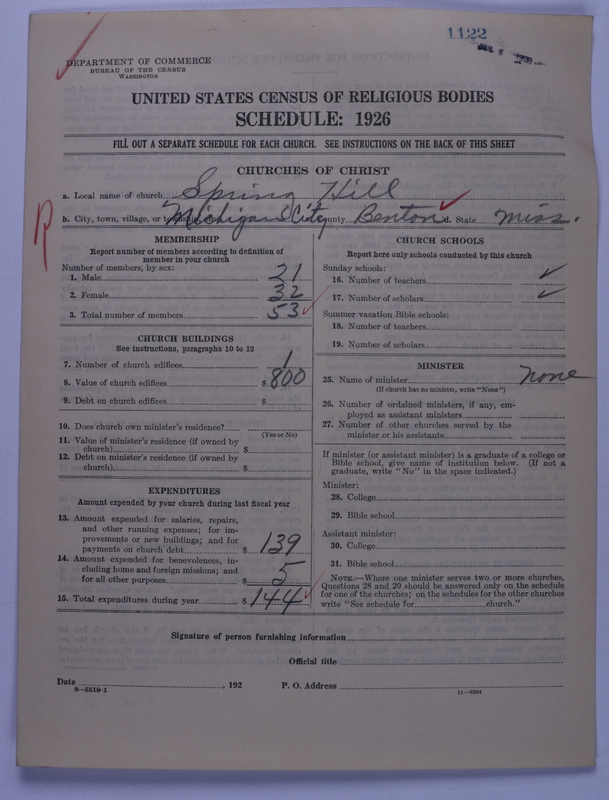 1122
DEPARTMENT OF COMMERCE
BUREAU OF THE CENSUS
WASHINGTON
UNITED STATES CENSUS OF RELIGIOUS BODIES
SCHEDULE: 1926
FILL OUT A SEPARATE SCHEDULE FOR EACH CHURCH. SEE INSTRUCTIONS ON THE BACK OF THIS SHEET
CHURCHES OF CHRIST
a. Local name of church Spring Hill
b. City, town, village, or Michigan City County Benton d. State Miss.
R
MEMBERSHIP
Report number of members according to definition of
member in your church
Number of members, by sex:
1. Male 21
2. Female 32
3. Total number of members 53
CHURCH BUILDINGS
See instructions, paragraphs 10 to 12
7. Number of church edifices 1
8. Value of church edifices $ 800
9. Debt on church edifices $
10. Does church own minister's residence?
(Yes or No)
11. Value of minister's residence (if owned by
church) $
12. Debt on minister's residence (if owned by
church) $
EXPENDITURES
Amount expended by your church during last fiscal year
13. Amount expended for salaries, repairs,
and other running expenses; for im-
provements or new buildings; and for
payments on church debt $ 139
14. Amount expended for benevolences, in-
cluding home and foreign missions; and
for all other purposes $ 5
15. Total expenditures during year $ 144
CHURCH SCHOOLS
Report here only schools conducted by this church
Sunday schools:
16. Number of teachers
17. Number of scholars
Summer vacation Bible schools:
18. Number of teachers
19. Number of scholars
MINISTER
25. Name of minister none
(If church has no minister, write "None")
26. Number of ordained ministers, if any, em-
ployed as assistant ministers
27. Number of other churches served by the
minister or his assistants
If minister (or assistant minister) is a graduate of a college or
Bible school, give name of institution below. (If not a
graduate, write "No" in the space indicated.)
Minister:
28. College
29. Bible school
Assistant minister:
30. College
31. Bible school
NOTE.—Where one minister serves two or more churches,
Questions 28 and 29 should be answered only on the schedule
for one of the churches; on the schedules for the other churches
write "See schedule for church."
Signature of person furnishing information
Official title
Date , 192 P. O. Address
8—5518-1